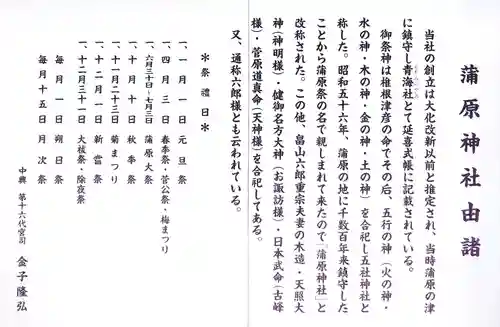 蒲原神社由諸
当社の創立は大化改新以前と推定され、当時蒲原の津
に鎮守し青海社とて延喜式帳に記載されている。
御祭神は椎根津彦の命でその后、五行の神(火の神・
水の神・木の神・金の神・土の神)を合祀し五社神社と
称した。昭和五十六年、蒲原の地に千数百年来鎮守した
ことから蒲原祭の名で親しまれて来たので「蒲原神社」と
改称された。この他、畠山六郎重宗夫妻の木造・天照大
神(神明様)・健御名方大神(お諏訪様)・日本武命(古峰
様)・菅原道真命(天神様)を合祀してある。
又、通称六郎様とも云われている。
*祭禮日*
一、一月一日 元旦祭
一、四月三日 春季祭・菅公祭・梅まつり
一、六月三十日〜七月三日 蒲原大祭
一、十月十日 秋季祭
一、十一月二十三日 菊まつり
一、十二月一日 新嘗祭
一、十二月三十一日 大祓祭・除夜祭
毎月一日 朔日祭
毎月十五日 月次祭
中興 第十六代宮司 金子隆弘